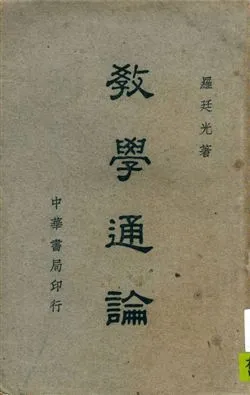 羅廷光著
教學通論
中華書局印行